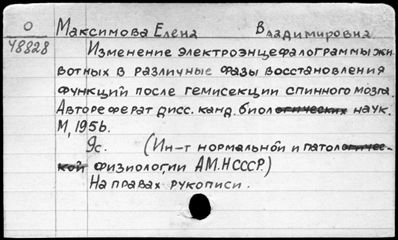 О
48828
Максимова Елена Владимировна
Изменение электроэнцефалограммы жи
вотных в различные фазы восстановления
функций после гемисекции спинного мозга.
Автореферат дисс. канд. биологических наук.
М, 1956.
9с. (Ин-т нормальной и патологичес-
кой физиологии АМНСССР.)
На правах рукописи.